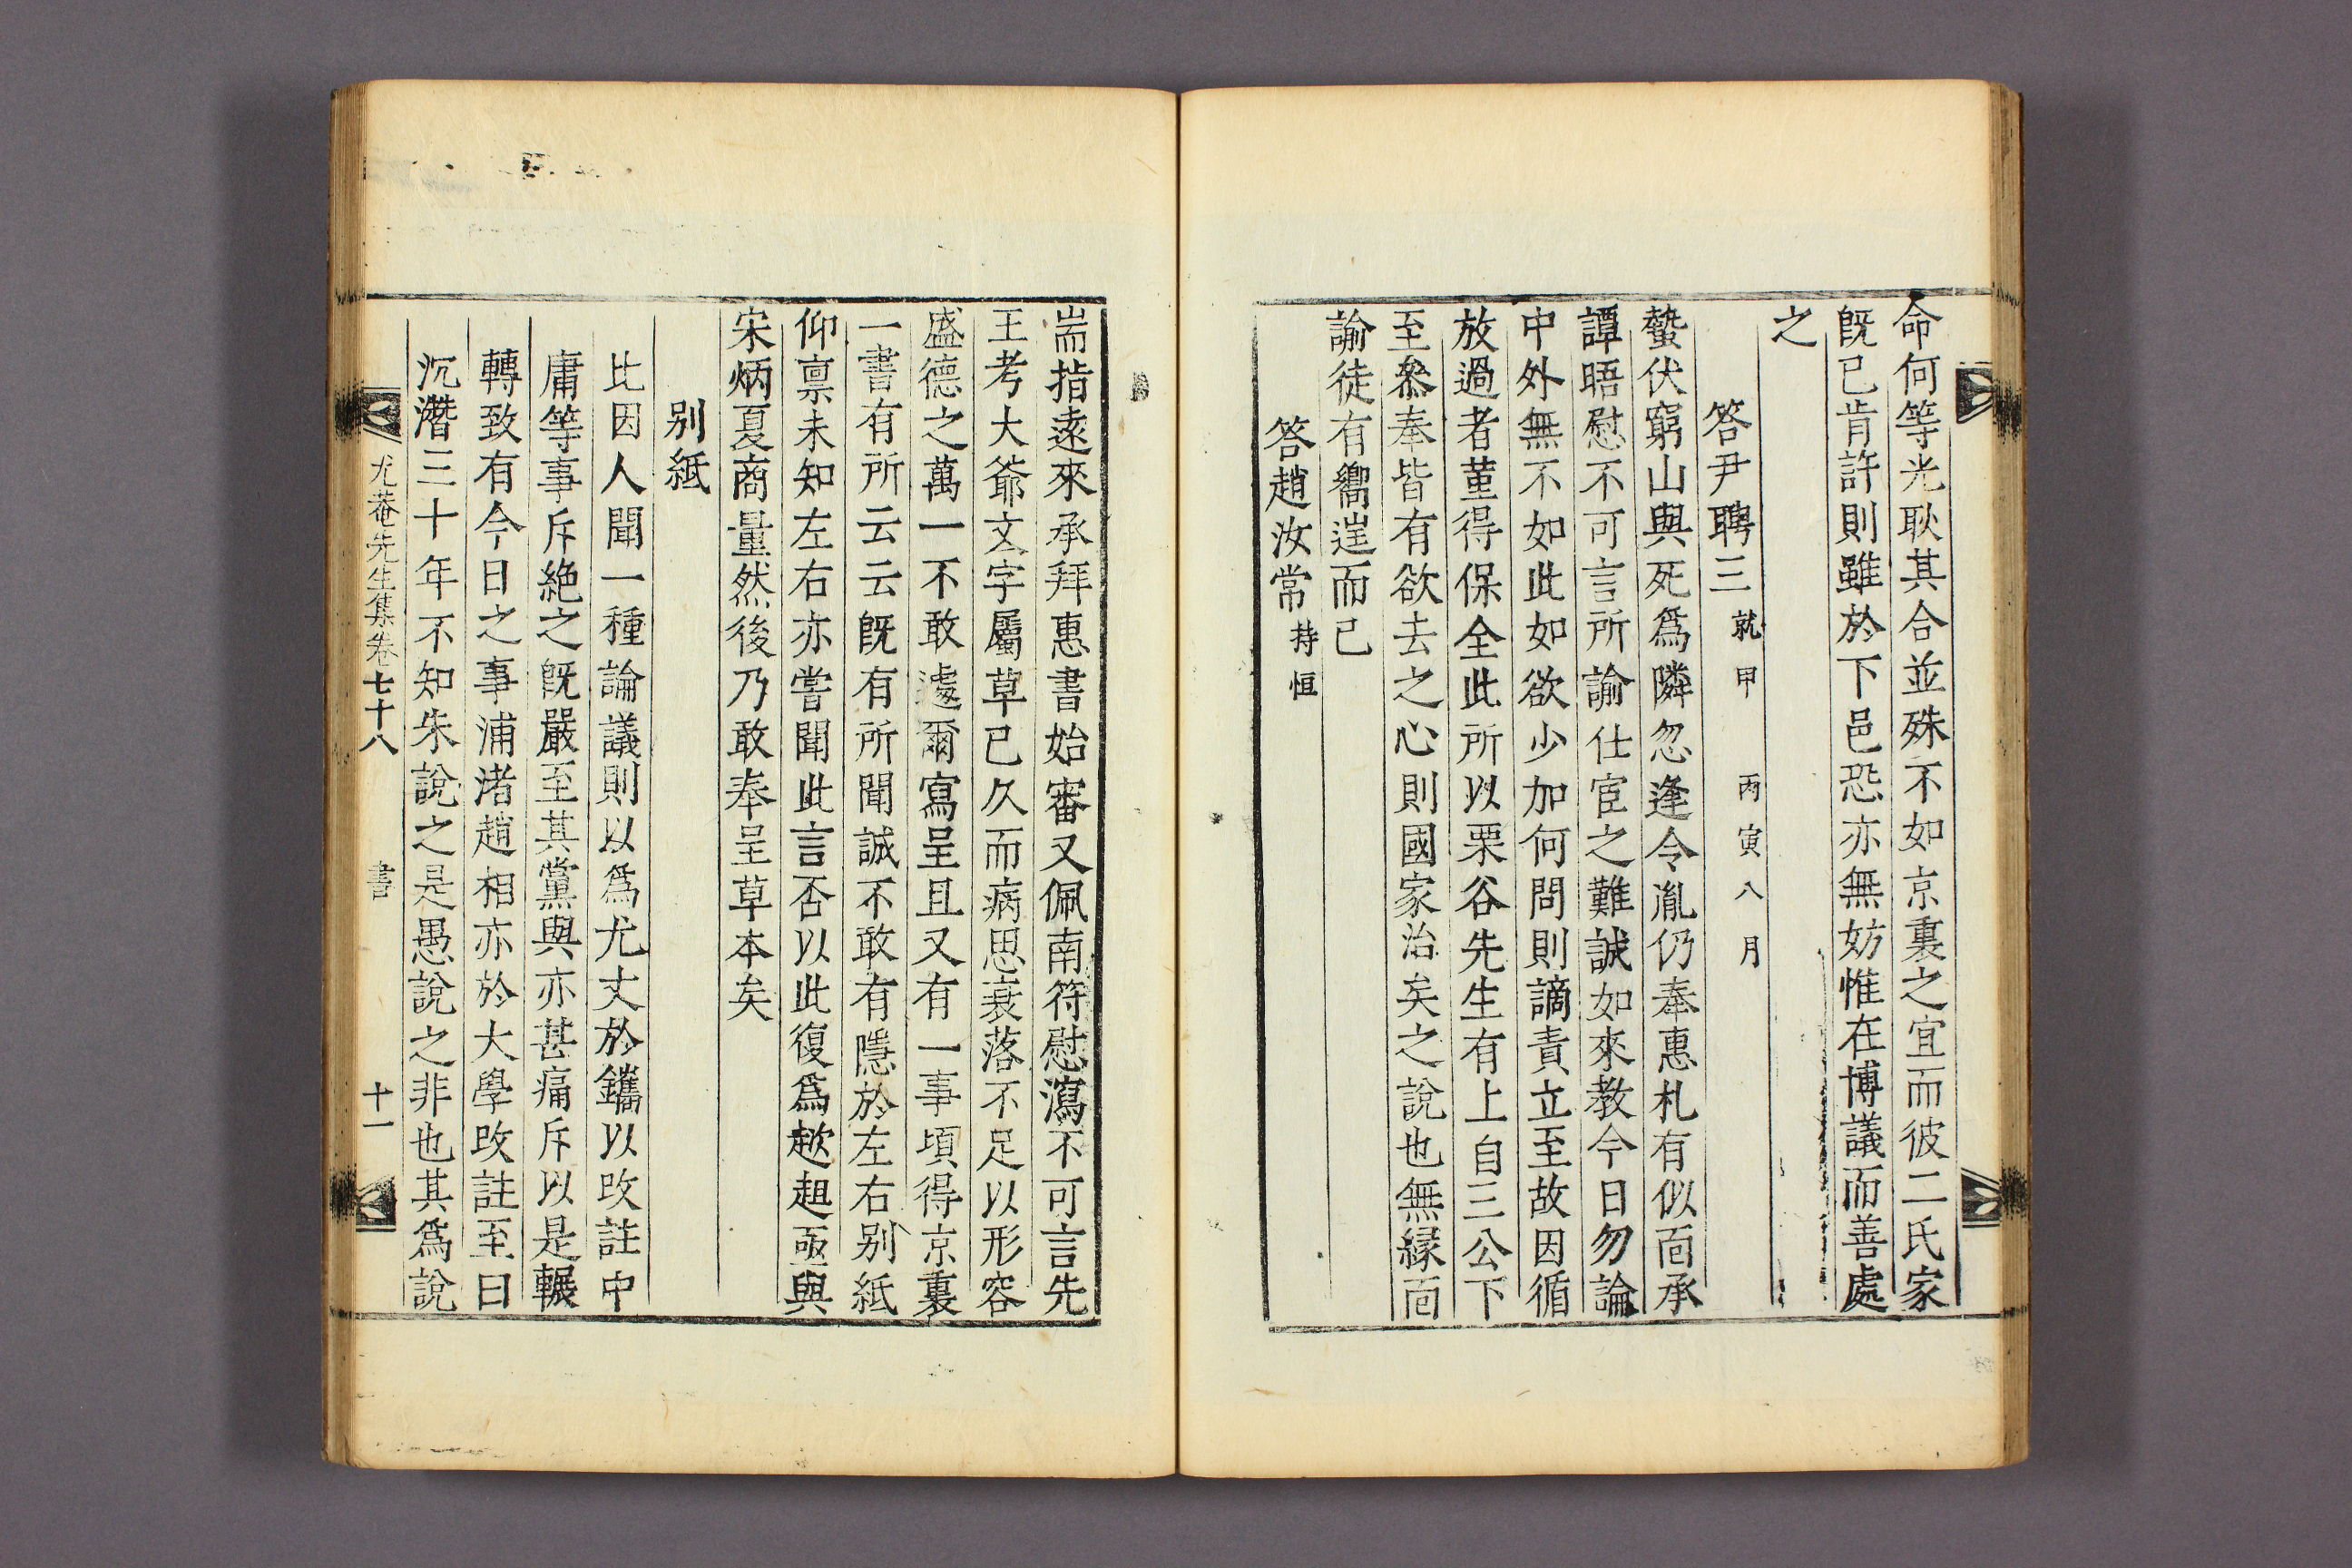 命何等光耿其合並殊不如京裏之宜而彼二氏家
旣已肯許則雖於下邑恐亦無妨惟在博議而善處
之
答尹聘三 就甲 丙寅八月
蟄伏窮山與死爲隣忽逢令胤仍奉惠札有似面承
譚晤慰不可言所諭仕宦之難誠如來敎今日勿論
中外無不如此如欲少加何問則謫責立至故因循
放過者菫得保全此所以栗谷先生有上自三公下
至叅奉皆有欲去之心則國家治矣之說也無緣面
諭徒有嚮𨓏而已
答趙汝常 持恒
耑指遠來承拜惠書始審又佩南符慰瀉不可言先
王考大爺文字屬草已久而病思衰落不足以形容
盛德之萬一不敢遽爾寫呈且又有一事頃得京裏
一書有所云云旣有所聞誠不敢有隱於左右別紙
仰禀未知左右亦嘗聞此言否以此復爲趑趄亟與
宋炳夏商量然後乃敢奉呈草本矣
別紙
比因人聞一種論議則以爲尤丈於鑴以改註中
庸等事斥絶之旣嚴至其黨與亦甚痛斥以是輾
轉致有今日之事浦渚趙相亦於大學改註至曰
沉潛三十年不知朱說之是愚說之非也其爲說
尤菴先生集卷七十八 書 十一